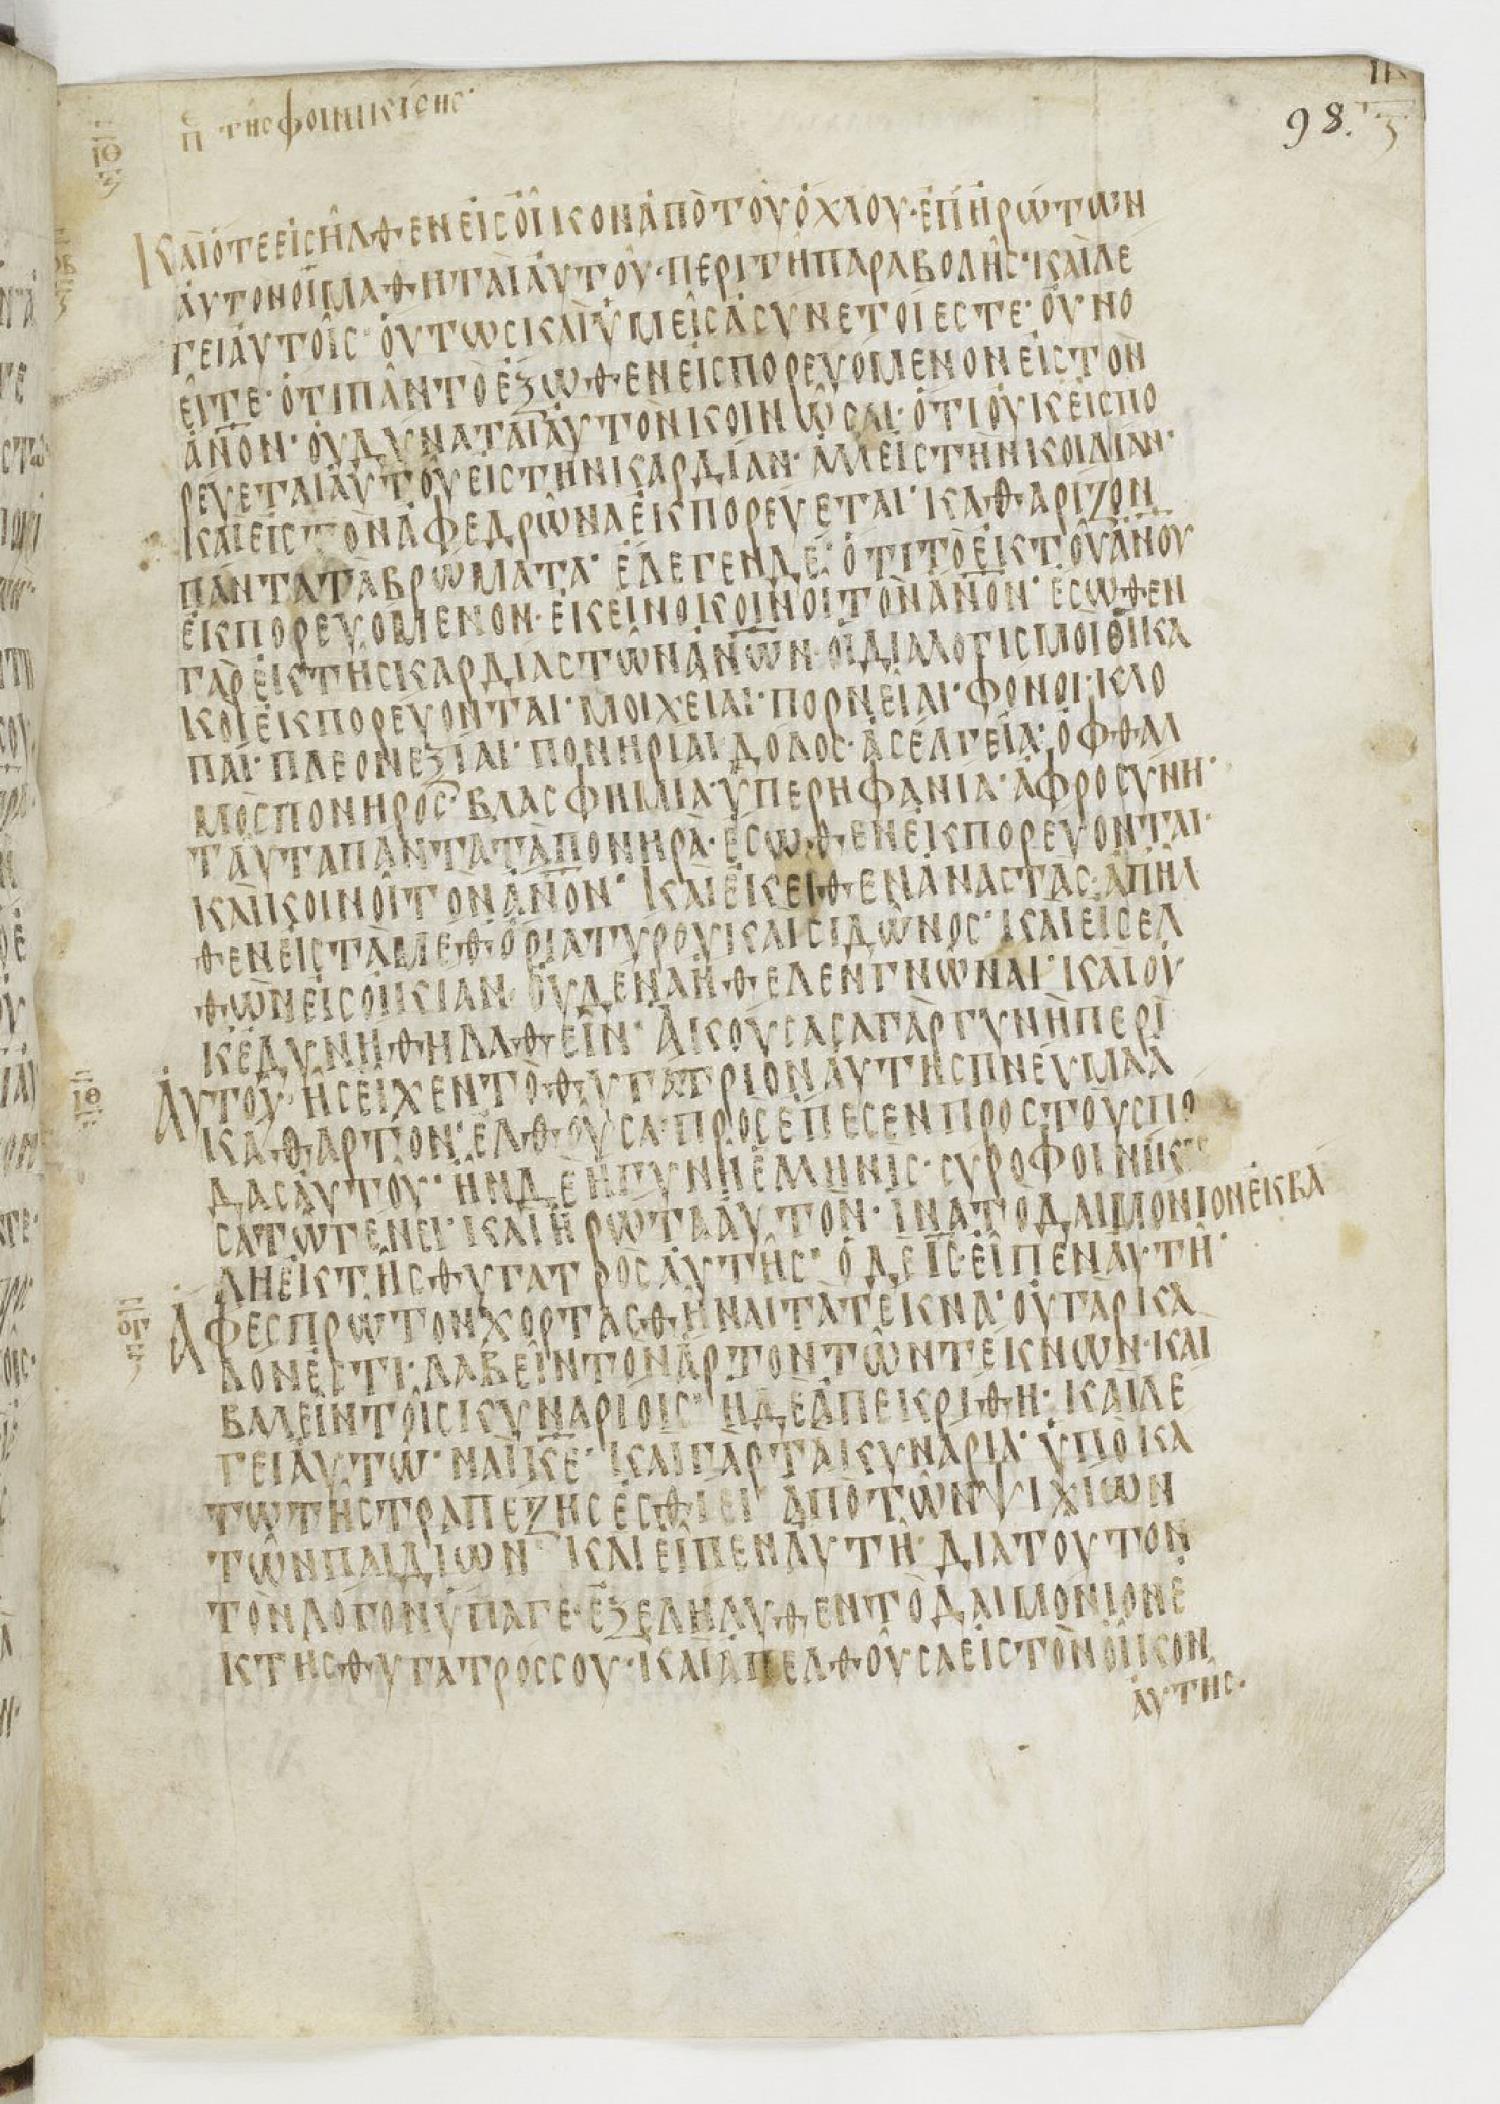 98.
π̅ε̅ τῆς φοινικίσης·
ΚΑΙ ΟΤΕ ΕΙΣΗΛΘΕΝ ΕΙΣ ΟΙΚΟΝ ΑΠΟ ΤΟΥ ΟΧΛΟΥ· ΕΠΗΡΩΤΩΝ
ΑΥΤΟΝ ΟΙ ΜΑΘΗΤΑΙ ΑΥΤΟΥ· ΠΕΡΙ ΤΗ ΠΑΡΑΒΟΛΗΣ· ΚΑΙ ΛΕ
ΓΕΙ ΑΥΤΟΙΣ· ΟΥΤΩΣ ΚΑΙ ΥΜΕΙΣ ΑΣΥΝΕΤΟΙ ΕΣΤΕ· ΟΥ ΝΟ
ΕΙΤΕ· ΟΤΙ ΠΑΝ ΤΟ ΕΞΩΘΕΝ ΕΙΣΠΟΡΕΥΟΜΕΝΟΝ ΕΙΣ ΤΟΝ
Α̅Ν̅Ο̅Ν· ΟΥ ΔΥΝΑΤΑΙ ΑΥΤΟΝ ΚΟΙΝΩΣΑΙ· ΟΤΙ ΟΥΚ ΕΙΣΠΟ
ΡΕΥΕΤΑΙ ΑΥΤΟΥ ΕΙΣ ΤΗΝ ΚΑΡΔΙΑΝ· ΑΛΛ ΕΙΣ ΤΗΝ ΚΟΙΛΙΑΝ·
ΚΑΙ ΕΙΣ ΤΟΝ ΑΦΕΔΡΩΝΑ ΕΚΠΟΡΕΥΕΤΑΙ· ΚΑΘΑΡΙΖΟΝ
ΠΑΝΤΑ ΤΑ ΒΡΩΜΑΤΑ· ΕΛΕΓΕΝ ΔΕ· ΟΤΙ ΤΟ ΕΚ ΤΟΥ Α̅Ν̅Ο̅Υ
ΕΚΠΟΡΕΥΟΜΕΝΟΝ· ΕΚΕΙΝΟ ΚΟΙΝΟΙ ΤΟΝ Α̅Ν̅Ο̅Ν· ΕΣΩΘΕΝ
ΓΑΡ ΕΚ ΤΗΣ ΚΑΡΔΙΑΣ ΤΩΝ Α̅Ν̅Ω̅Ν· ΟΙ ΔΙΑΛΟΓΙΣΜΟΙ ΟΙ ΚΑ
ΚΟΙ ΕΚΠΟΡΕΥΟΝΤΑΙ· ΜΟΙΧΕΙΑΙ· ΠΟΡΝΕΙΑΙ· ΦΟΝΟΙ· ΚΛΟ
ΠΑΙ· ΠΛΕΟΝΕΞΙΑΙ· ΠΟΝΗΡΙΑΙ ΔΟΛΟΣ· ΑΣΕΛΓΕΙΑ· ΟΦΘΑΛ
ΜΟΣ ΠΟΝΗΡΟΣ· ΒΛΑΣΦΗΜΙΑ· ΥΠΕΡΗΦΑΝΙΑ· ΑΦΡΟΣΥΝΗ·
ΤΑΥΤΑ ΠΑΝΤΑ ΤΑ ΠΟΝΗΡΑ· ΕΣΩΘΕΝ ΕΚΠΟΡΕΥΟΝΤΑΙ·
ΚΑΙ ΚΟΙΝΟΙ ΤΟΝ Α̅Ν̅Ο̅Ν· ΚΑΙ ΕΚΕΙΘΕΝ ΑΝΑΣΤΑΣ· ΑΠΗΛ
ΘΕΝ ΕΙΣ ΤΑ ΜΕΘΟΡΙΑ ΤΥΡΟΥ ΚΑΙ ΣΙΔΩΝΟΣ· ΚΑΙ ΕΙΣΕΛ
ΘΩΝ ΕΙΣ ΟΙΚΙΑΝ· ΟΥΔΕΝΑ ΗΘΕΛΕΝ ΓΝΩΝΑΙ· ΚΑΙ ΟΥ
Κ ΕΔΥΝΗΘΗ ΛΑΘΕΙΝ· ΑΚΟΥΣΑΣΑ ΓΑΡ ΓΥΝΗ ΠΕΡΙ
ΑΥΤΟΥ· ΗΣ ΕΙΧΕΝ ΤΟ ΘΥΓΑΤΡΙΟΝ ΑΥΤΗΣ ΠΝΕΥΜΑ Α
ΚΑΘΑΡΤΟΝ· ΕΛΘΟΥΣΑ· ΠΡΟΣΕΠΕΣΕΝ ΠΡΟΣ ΤΟΥΣ ΠΟ
ΔΑΣ ΑΥΤΟΥ· ΗΝ ΔΕ Η ΓΥΝΗ ΕΛΛΗΝΙΣ· ΣΥΡΟΦΟΙΝΙΚ
ΣΑ ΤΩ ΓΕΝΕΙ· ΚΑΙ ΗΡΩΤΑ ΑΥΤΟΝ· ΙΝΑ ΤΟ ΔΑΙΜΟΝΙΟΝ ΕΚΒΑ
ΛΗ ΕΚ ΤΗΣ ΘΥΓΑΤΡΟΣ ΑΥΤΗΣ· Ο ΔΕ Ι̅Σ̅· ΕΙΠΕΝ ΑΥΤΗ·
ΑΦΕΣ ΠΡΩΤΟΝ ΧΟΡΤΑΣΘΗΝΑΙ ΤΑ ΤΕΚΝΑ· ΟΥ ΓΑΡ ΚΑ
ΛΟΝ ΕΣΤΙ· ΛΑΒΕΙΝ ΤΟΝ ΑΡΤΟΝ ΤΩΝ ΤΕΚΝΩΝ· ΚΑΙ
ΒΑΛΕΙΝ ΤΟΙΣ ΚΥΝΑΡΙΟΙΣ· Η ΔΕ ΑΠΕΚΡΙΘΗ· ΚΑΙ ΛΕ
ΓΕΙ ΑΥΤΩ· ΝΑΙ Κ̅Ε̅· ΚΑΙ ΓΑΡ ΤΑ ΚΥΝΑΡΙΑ· ΥΠΟΚΑ
ΤΩ ΤΗΣ ΤΡΑΠΕΖΗΣ ΕΣΘΙΕΙ ΑΠΟ ΤΩΝ ΨΙΧΙΩΝ
ΤΩΝ ΠΑΙΔΙΩΝ· ΚΑΙ ΕΙΠΕΝ ΑΥΤΗ· ΔΙΑ ΤΟΥΤΟΝ
ΤΟΝ ΛΟΓΟΝ ΥΠΑΓΕ· ΕΞΕΛΗΛΥΘΕΝ ΤΟ ΔΑΙΜΟΝΙΟΝ Ε
Κ ΤΗΣ ΘΥΓΑΤΡΟΣ ΣΟΥ· ΚΑΙ ΑΠΕΛΘΟΥΣΑ ΕΙΣ ΤΟΝ ΟΙΚΟΝ
ΑΥΤΗΣ·